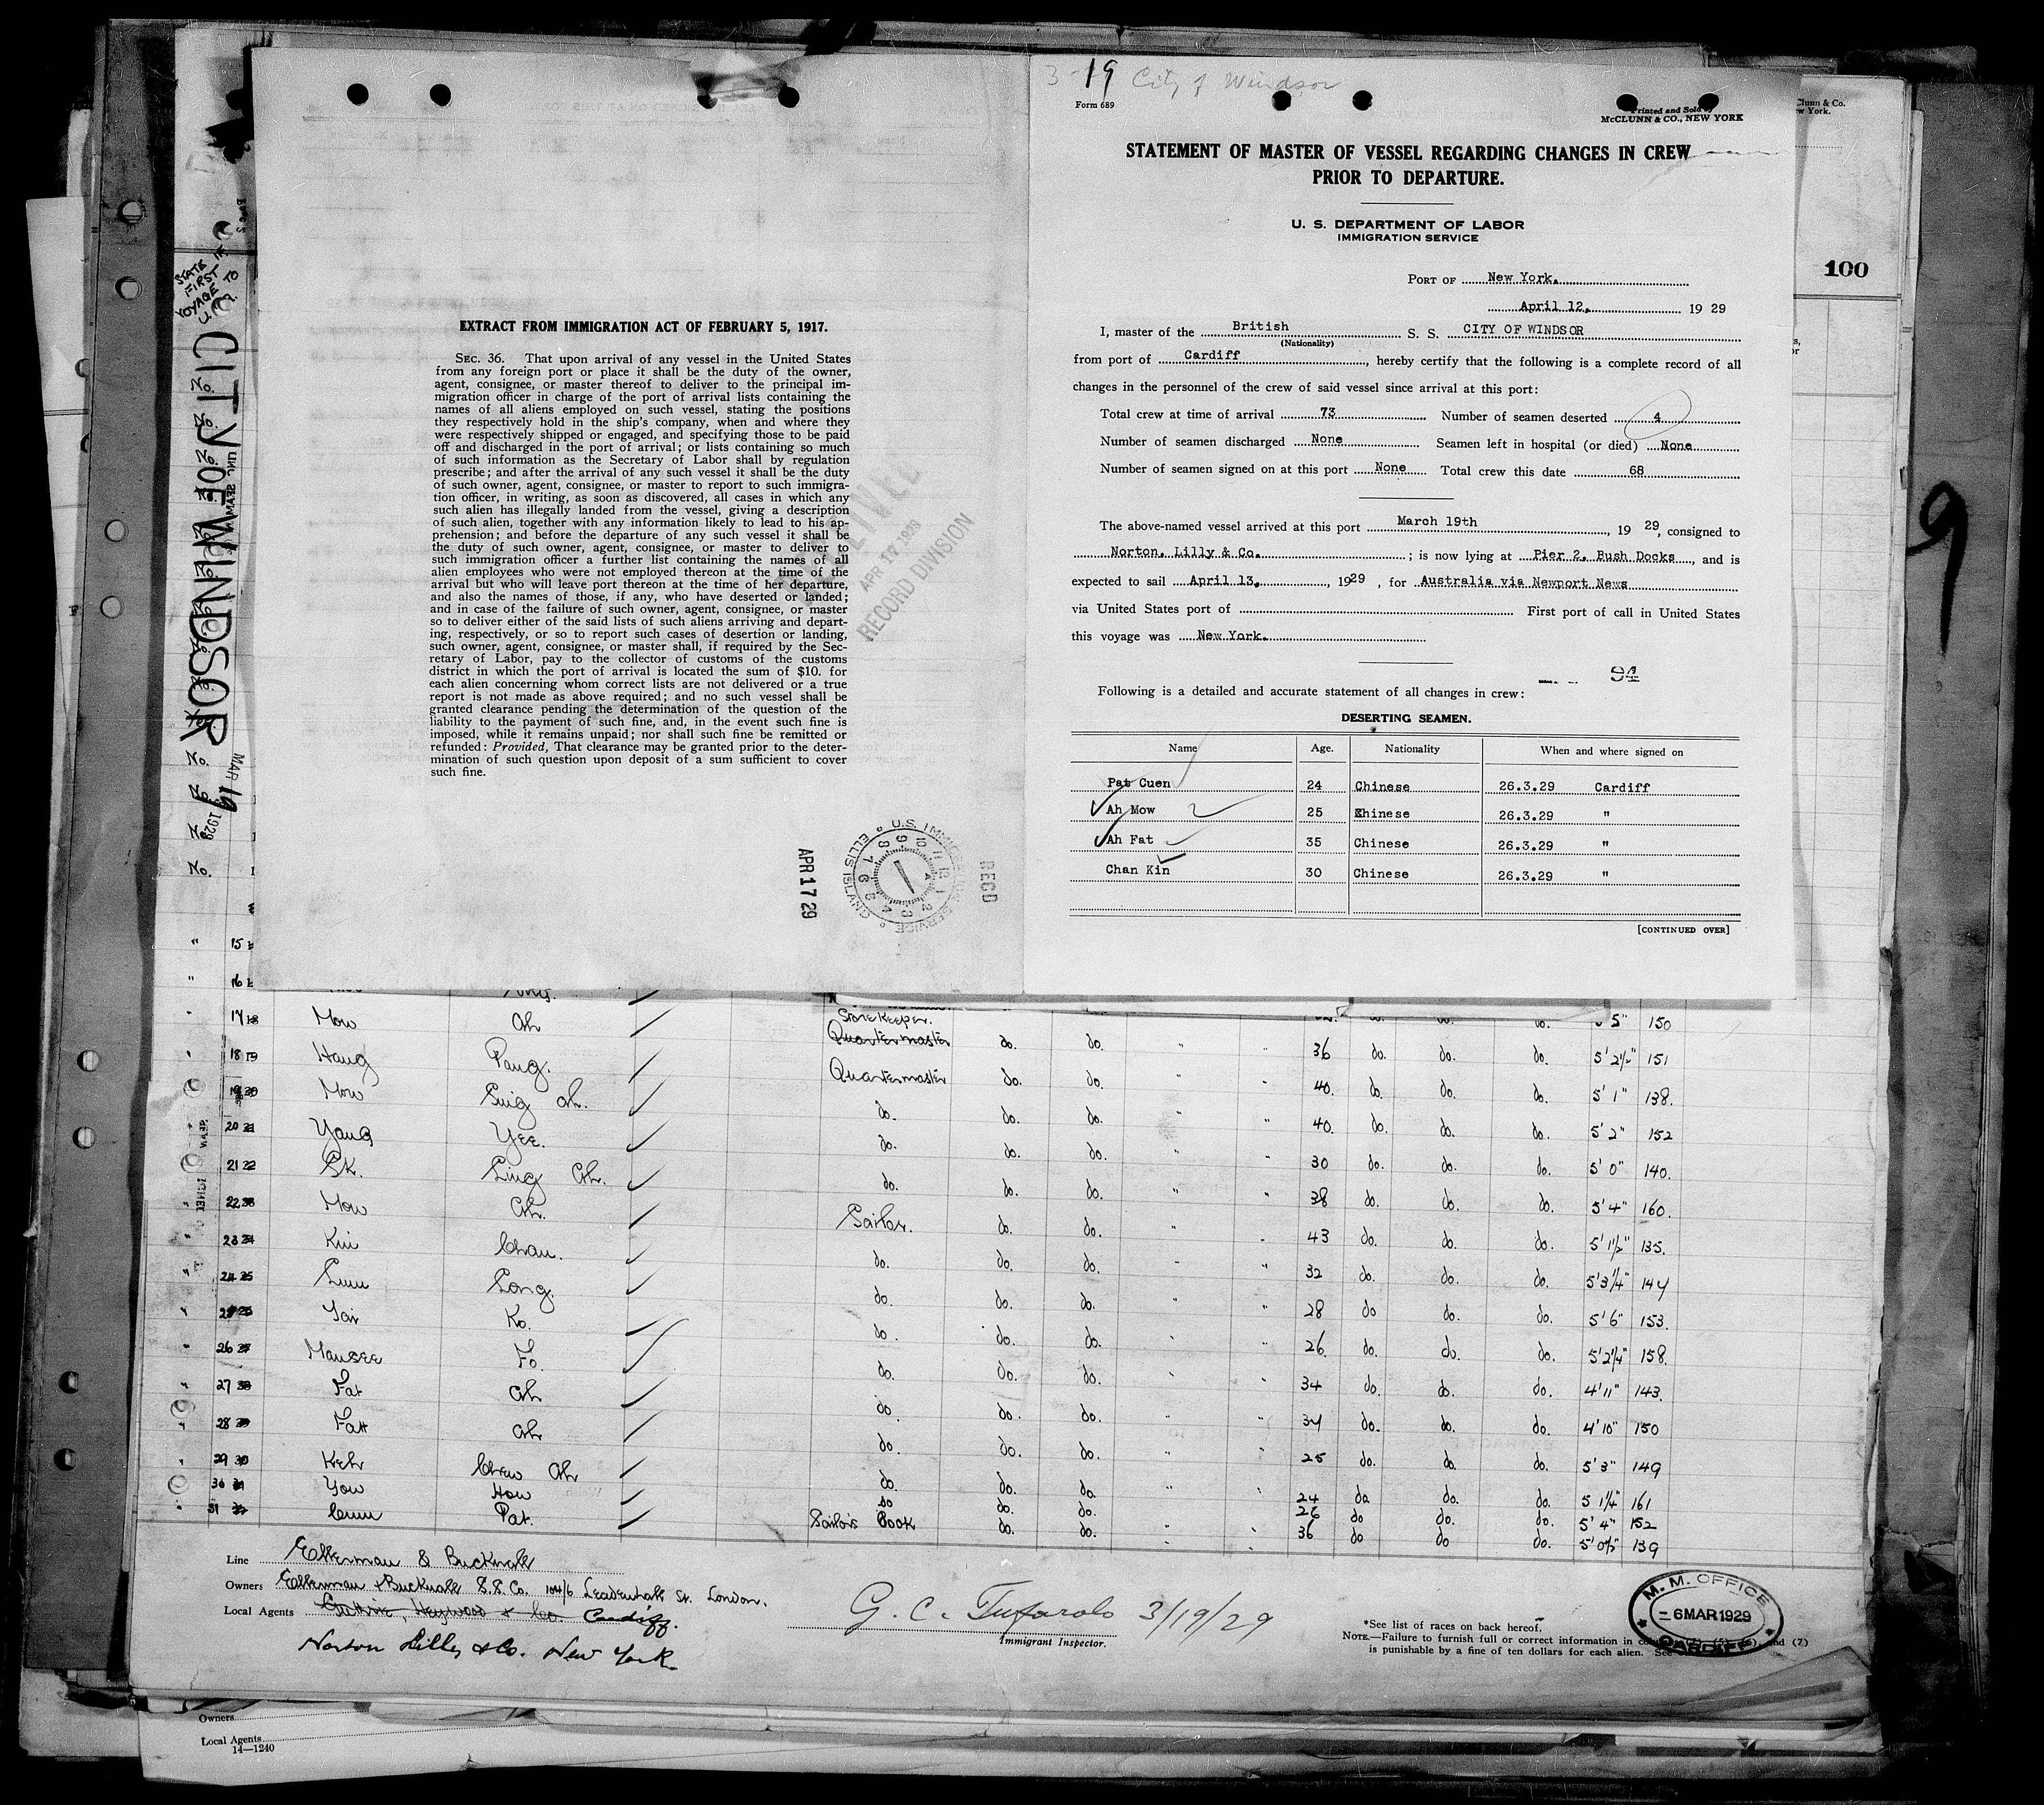 EXTRACT FROM IMMIGRATION ACT OF FEBRUARY 5, 1917.
SEC. 36. That upon arrival of any vessel in the United States
from any foreign port or place it shall be the duty of the owner,
agent, consignee, or master thereof to deliver to the principal im-
migration officer in charge of the port of arrival lists containing the
names of all aliens employed on such vessel, stating the positions
they respectively hold in the ship's company, when and where they
were respectively shipped or engaged, and specifying those to be paid
off and discharged in the port of arrival; or lists containing so much
of such information as the Secretary of Labor shall by regulation
prescribe; and after the arrival of any such vessel it shall be the duty
of such owner, agent, consignee, or master to report to such immigra-
tion officer, in writing, as soon as discovered, all cases in which any
such alien has illegally landed from the vessel, giving a description
of such alien, together with any information likely to lead to his ap-
prehension; and before the departure of any such vessel it shall be
the duty of such owner, agent, consignee, or master to deliver to
such immigration officer a further list containing the names of all
alien employees who were not employed thereon at the time of the
arrival but who will leave port thereon at the time of her departure,
and also the names of those, if any, who have deserted or landed;
and in case of the failure of such owner, agent, consignee, or master
so to deliver either of the said lists of such aliens arriving and depart-
ing, respectively, or so to report such cases of desertion or landing,
such owner, agent, consignee, or master shall, if required by the Sec-
retary of Labor, pay to the collector of customs of the customs
district in which the port of arrival is located the sum of $10. for
each alien concerning whom correct lists are not delivered or a true
report is not made as above required; and no such vessel shall be
granted clearance pending the determination of the question of the
liability to the payment of such fine, and, in the event such fine is
imposed, while it remains unpaid; nor shall such fine be remitted or
refunded: Provided, That clearance may be granted prior to the deter-
mination of such question upon deposit of a sum sufficient to cover
such fine.
RECORD DIVISION
APR 17 29
U.S. IMMIGRATION SERVICE ELLIS ISLAND
RECD
3-19 City of Windsor
Form 689
Printed and Sold by
McCLUNN & CO., NEW YORK
STATEMENT OF MASTER OF VESSEL REGARDING CHANGES IN CREW
PRIOR TO DEPARTURE.
U. S. DEPARTMENT OF LABOR
IMMIGRATION SERVICE
PORT OF New York.
April 12, 19 29
I, master of the British S. S. CITY OF WINDSOR
(Nationality)
from port of Cardiff, hereby certify that the following is a complete record of all
changes in the personnel of the crew of said vessel since arrival at this port:
Total crew at time of arrival 73 Number of seamen deserted 4
Number of seamen discharged None Seamen left in hospital (or died) None
Number of seamen signed on at this port None Total crew this date 68
The above-named vessel arrived at this port March 19th, 19 29, consigned to
Norton, Lilly & Co.; is now lying at Pier 2, Bush Docks, and is
expected to sail April 13, 1929, for Australia via Newport News
via United States port of First port of call in United States
this voyage was New York.
94
Following is a detailed and accurate statement of all changes in crew:
DESERTING SEAMEN.
Name Age. Nationality When and where signed on
Pat Cuen 24 Chinese 26.3.29 Cardiff
Ah Mow 25 Chinese 26.3.29 "
Ah Fat 35 Chinese 26.3.29 "
Chan Kin 30 Chinese 26.3.29 "
[CONTINUED OVER]
100
9
STATE IF FIRST VOYAGE TO U.S.
CITY OF WINDSOR
MAR 19 1929
No.
No.
" 15
" 16
17 18 Mow Ah Storekeeper. do. do. 5" 150
18 19 Hang Pang. Quartermaster do. do. " " 36 do. do. do. 5' 2½" 151
19 20 Mow Sing Ah. Quartermaster do. do. " " 40. do. do. do. 5' 1" 138.
20 21 Yang Yee. do. do. do. " " 40. do. do. do. 5' 2" 152
21 22 Sk. Sing Ah. do. do. do. " " 30 do. do. do. 5' 0" 140.
22 23 Mow Ah. do. do. do. " " 38 do. do. do. 5' 4" 160.
23 24 Kin Chan. Sailor. do. do. " " 43 do. do. do. 5' 1½" 135.
24 25 Sum Song. do. do. do. " " 32 do. do. do. 5' 3¼" 144
25 26 Tai Ko. do. do. do. " " 28 do do. do. 5' 6" 153.
26 27 Mansee Fo. do. do. do. " " 26. do. do. do. 5' 2¼" 158.
27 28 Fat Ah do. do. do. " " 34 do. do. do. 4' 11" 143.
28 29 Fatt Ah do. do. do. " " 34 do. do. do. 4' 10" 150
29 30 Keh Chew Ah do. do. do. " " 25 do. do. do. 5' 3" 149
30 31 You How do. do. do. " " 24 do. do. do. 5 1¼" 161
26 do do. do. 5' 4" 152
31 32 Cuun Pat. Sailors Cook do. do. " " 36 do do do. 5' 0½" 139
Line Ellerman & Bucknall
Owners Ellerman & Bucknall S.S. Co. 104/6 Leadenhall St. London.
Local Agents Guthrie, Heywood & Co. Cardiff.
Norton Lilly & Co. New York.
G. C. Tufarolo 3/19/29
Immigrant Inspector.
*See list of races on back hereof.
NOTE.—Failure to furnish full or correct information in and (7)
is punishable by a fine of ten dollars for each alien. See
M. M. OFFICE
6 MAR 1929
CARDIFF
Owners
Local Agents
14—1240